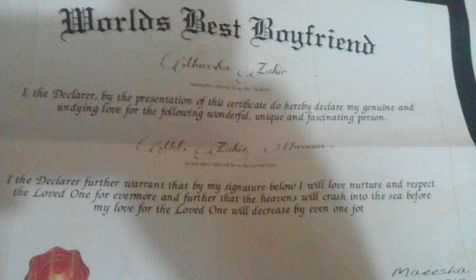 Worlds Best Boyfriend
Maeesha Zakir
I, the Declarer, by the presentation of this certificate do hereby declare my genuine and
undying love for the following wonderful, unique and fascinating person.
Zakir Hussain
I the Declarer further warrant that by my signature below I will love nurture and respect
the Loved One for evermore and further that the heavens will crash into the sea before
my love for the Loved One will decrease by even one jot
Maeesha